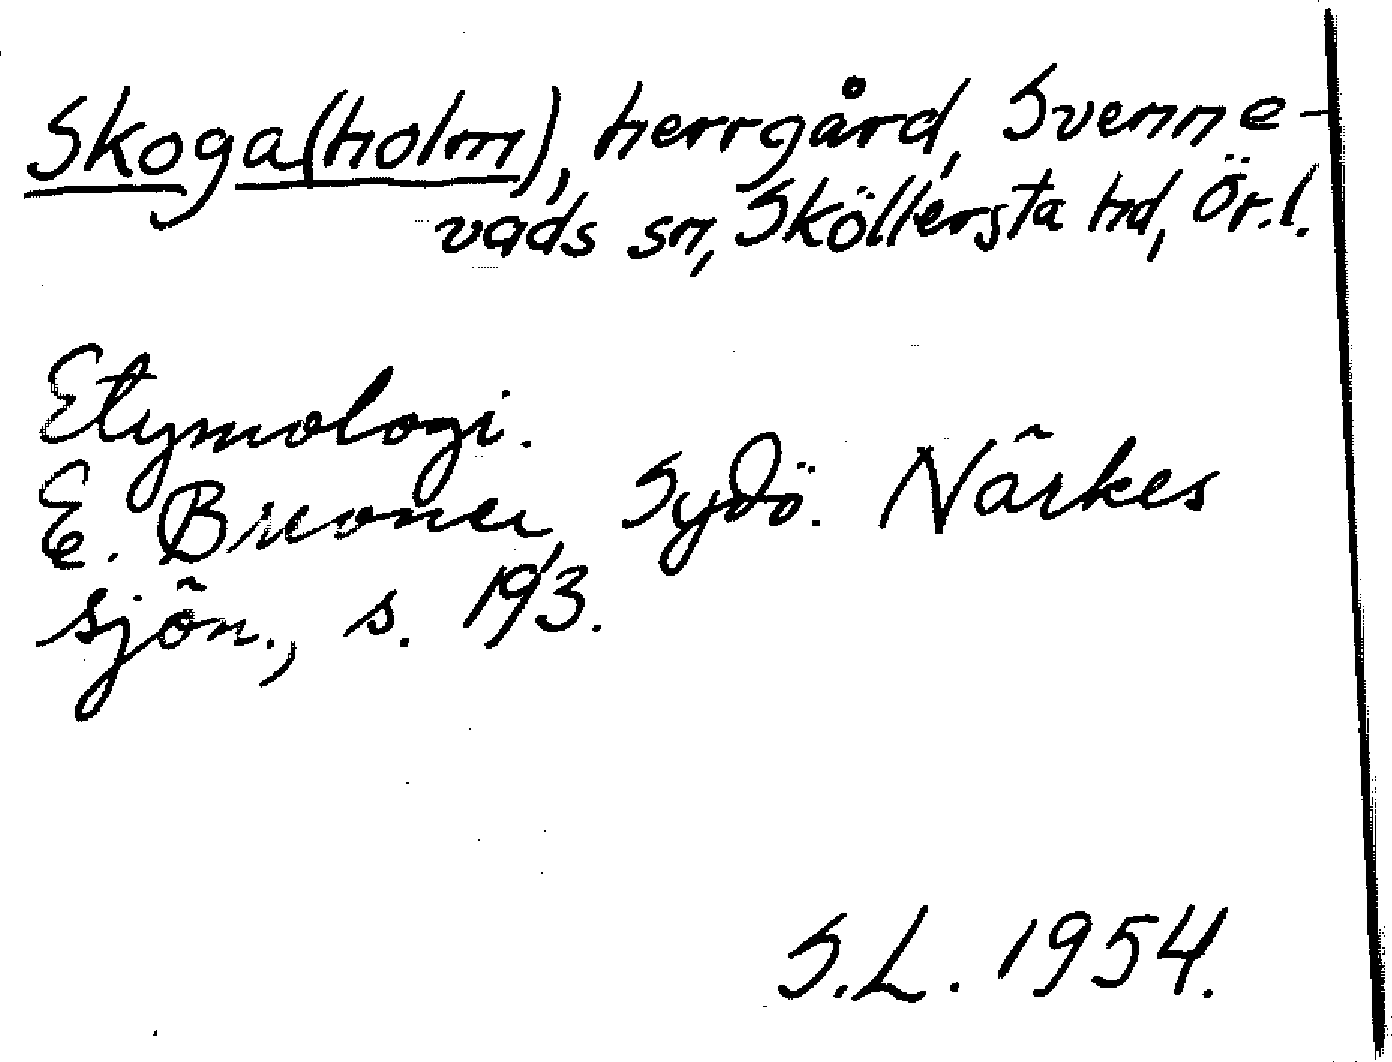 Skoga(holm), herrgård, Svenne-
vads sn, Sköllersta hd, Ör.l.
Etymologi.
E. Brevner, Sydö. Närkes
sjön., s. 193.
S.L. 1954.